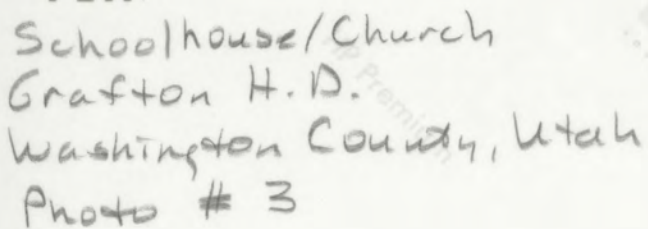 Schoolhouse/Church
Grafton H.D.
Washington County, Utah
Photo # 3